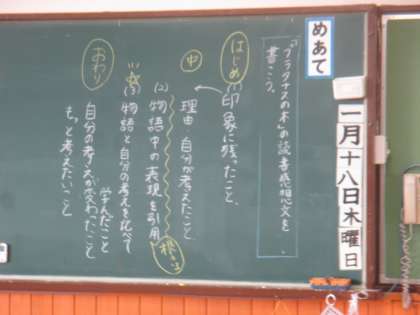 めあて
一月十八日木曜日
「プラタナスの木」の読書感想文を
書こう。
はじめ
(1) 印象に残ったこと
中
理由・自分が考えたこと
(2) 物語中の表現を引用
(3) 物語と自分の考えを比べて
学んだこと
おわり
自分の考えが変わったこと
もっと考えたいこと